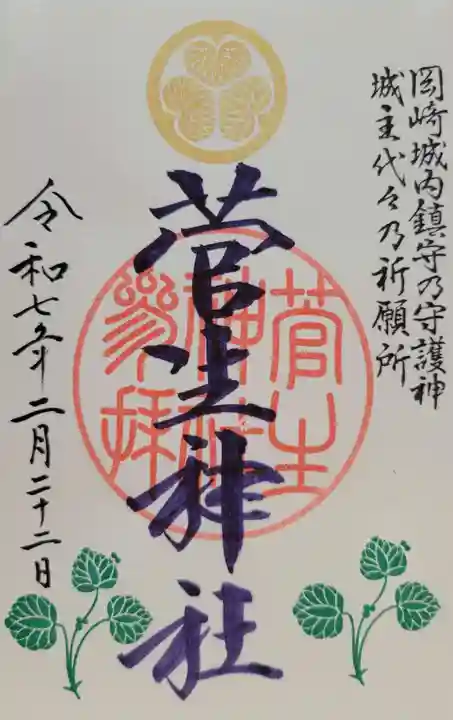 岡崎城内鎮守乃守護神
城主代々乃祈願所
菅生神社
菅生
神社
参拝
令和七年二月二十二日